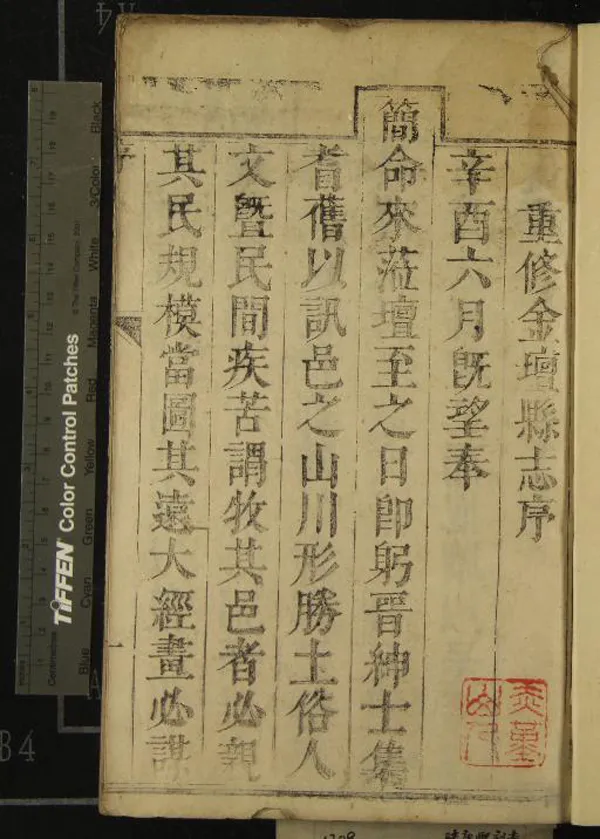 重修金壇縣志序
辛酉六月既望奉
簡命來蒞壇至之日卽躬晉紳士集
耆舊以訊邑之山川形勝土俗人
文曁民間疾苦謂牧其邑者必親
其民規模當圖其遠大經畫必謀
序
一
TIFFEN Color Control Patches
© The Tiffen Company, 2007
Centimetres
Blue Cyan Green Yellow Red Magenta White 3/Color Black